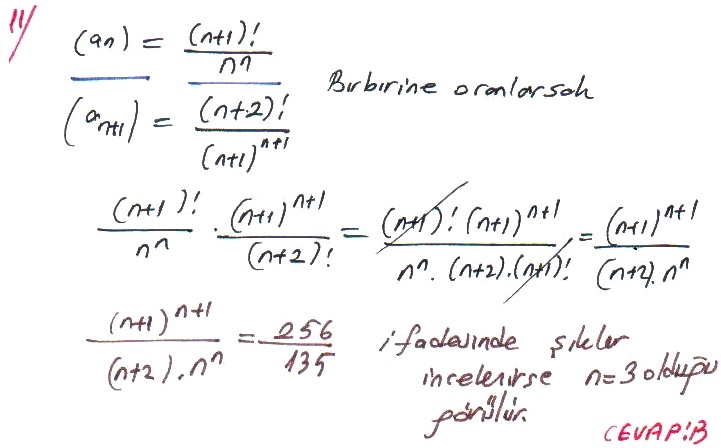 11/
(an) = (n+1)! / n^n
(a_{n+1}) = (n+2)! / (n+1)^{n+1} Birbirine oranlarsak
(n+1)! / n^n . (n+1)^{n+1} / (n+2)! = (n+1)! (n+1)^{n+1} / n^n . (n+2).(n+1)! = (n+1)^{n+1} / (n+2). n^n
(n+1)^{n+1} / (n+2). n^n = 256 / 135 ifadesinde şıklar
incelenirse n=3 olduğu
görülür.
CEVAP:B